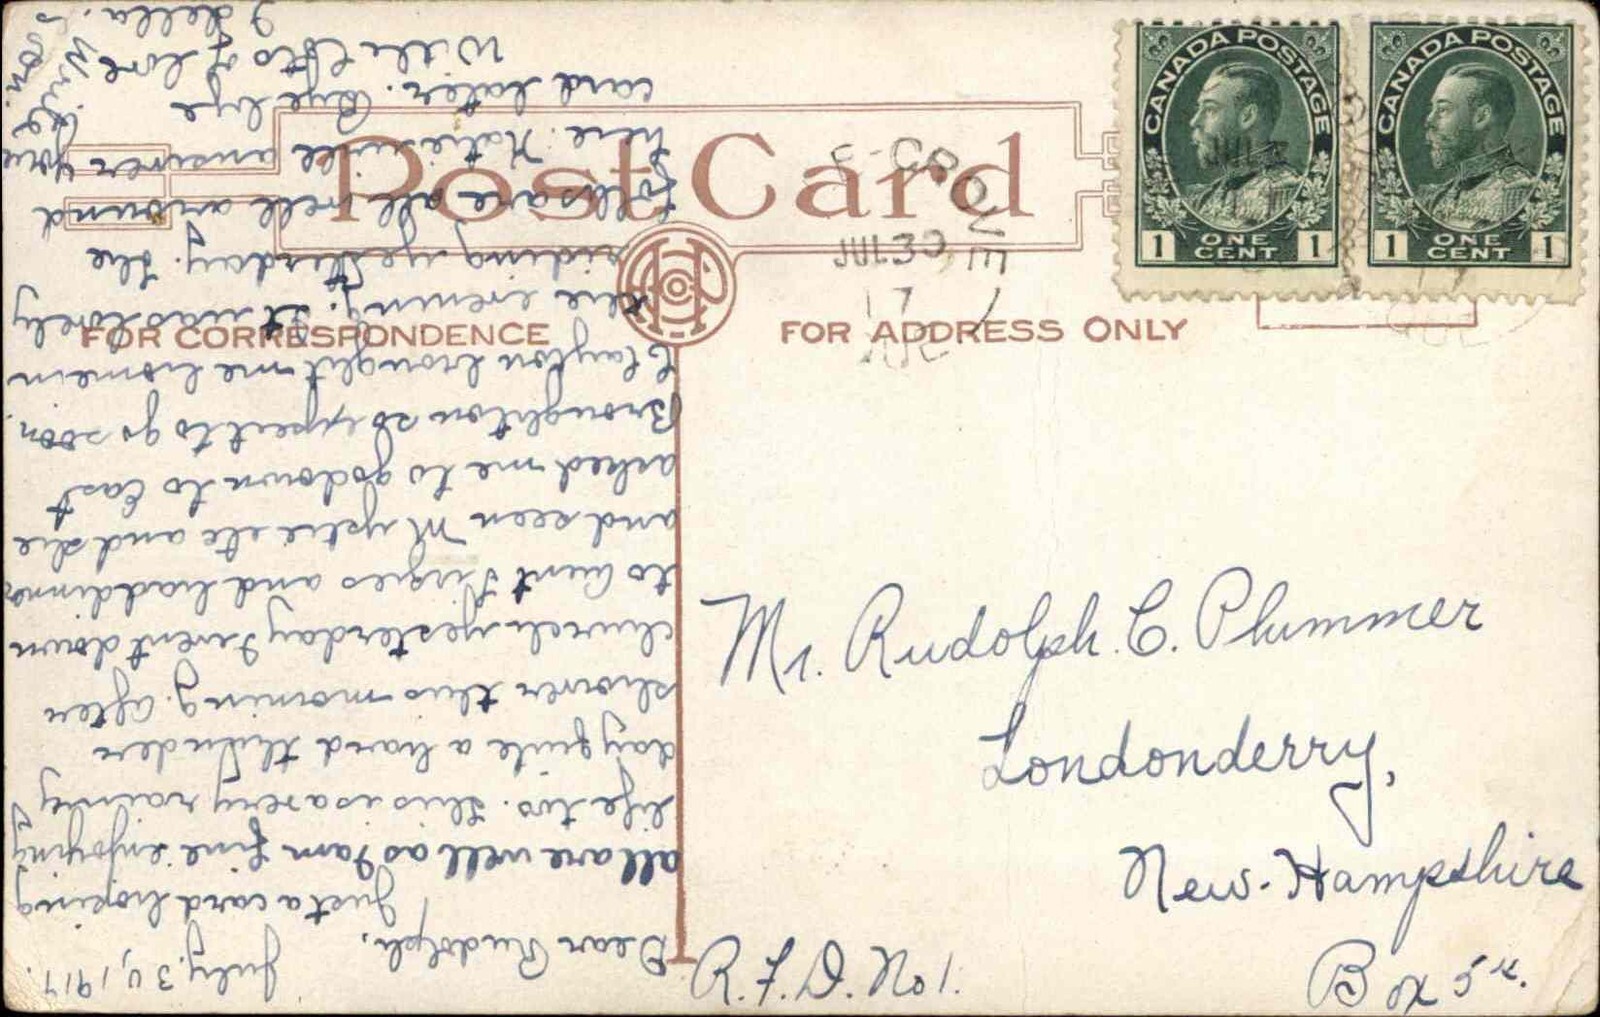 Post Card
FOR CORRESPONDENCE
FOR ADDRESS ONLY
CANADA POSTAGE
1 ONE CENT 1
CANADA POSTAGE
1 ONE CENT 1
JUL 30
17
QUE
Mr. Rudolph. C. Plummer
Londonderry,
New-Hampshire
R.F.D. No 1.
Box 54.
July, 30, 1917.
Dear Rudolph,
Just a card hoping
all are well as I am fine enjoying
life too. This is a very rainy
day quite a hard thunder
shower this morning. After
church yesterday I went down
to Aunt and had dinner
and seen Mystic etc and she
asked me to go down to East
Broughton so expect to go soon.
Clayton brought me home in
the evening. It was lovely
riding yesterday. The
folks are all well around
here. Katie will answer your
card later. Bye bye
Write soon.
With lots of love
Della.